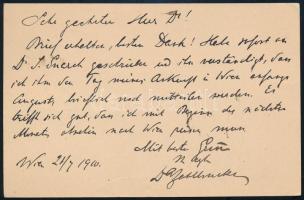 Sehr geehrter Herr Dr!
Brief erhalten, besten Dank! Habe sofort an
Dr. geschrieben und ihn verständigt, dass
ich ihm den Tag meiner Ankunft in Wien anfangs
August, brieflich noch mitteilen werde. Es
trifft sich gut, dass ich mit Beginn des nächsten
Monats ohnehin nach Wien reisen muss.
Mit besten Grüssen
Wien 21/7 1910.